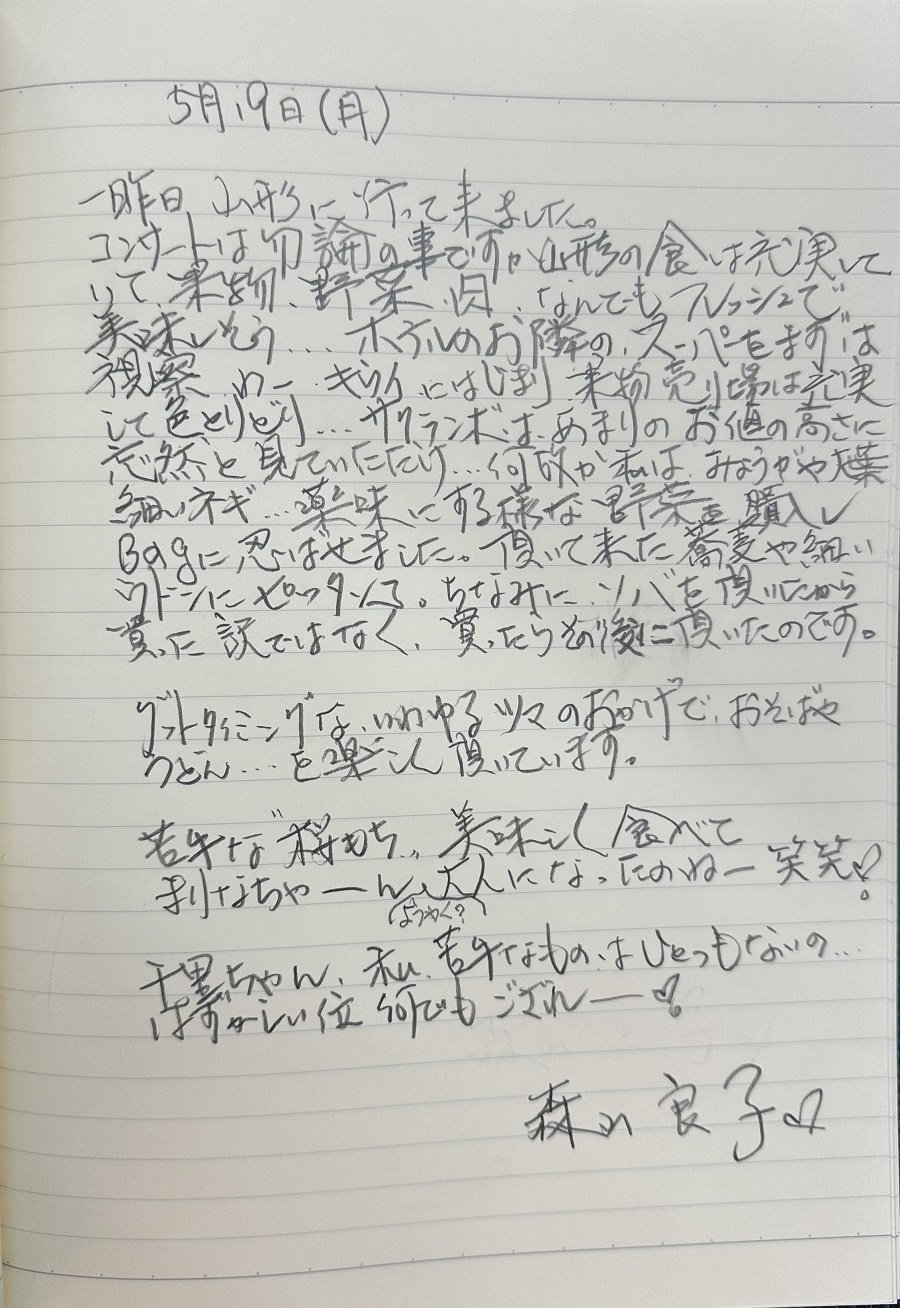 5月19日(月)
一昨日、山形に行って来ました。
コンサートは勿論の事ですが山形の食は充実して
いて、果物、野菜、肉、なんでもフレッシュで
美味しそう... ホテルのお隣の、スーパーをまずは
視察 わー キウイにはじまり 果物売り場は充実
して色とりどり... サクランボは、あまりのお値の高さに
茫然と見ていただけ... 何故か私は、みょうがや大葉
細いネギ... 薬味にする様な野菜を購入し
Bagに忍ばせました。頂いて来た蕎麦や細い
ウドンにピッタンコ。ちなみに、ソバを頂いたから
買った訳ではなく、買ったらその後に頂いたのです。
グットタイミングな、いわゆるツマのおかげで、おそばや
うどん... を楽しく頂いています。
苦手な桜もち、、美味しく食べて
まりなちゃーん、大人になったのねー 笑笑♡!
(ようやく?)
千里ちゃん、私、苦手なものはひとつもないの...
はずかしい位 何でもござれー♡!
森山良子♡